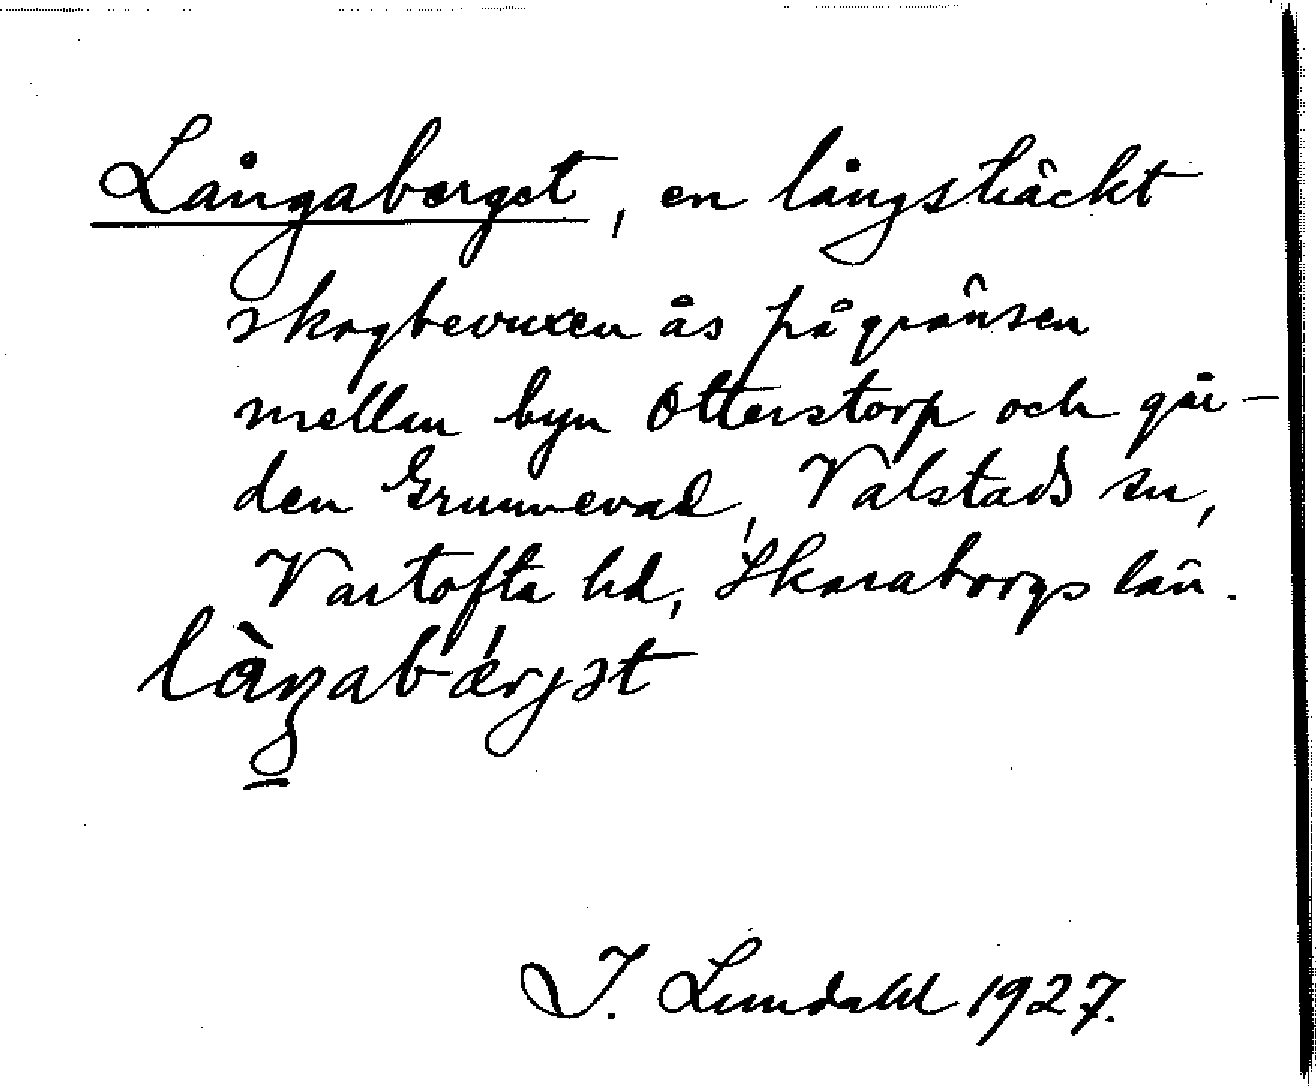 Långaberget, en långsträckt
skogbevuxen ås på gränsen
mellan byn Otterstorp och går-
den Grunnevad, Valstads sn,
Vartofta hd, Skaraborgs län.
làŋabǽrjət
I. Lundahl 1927.